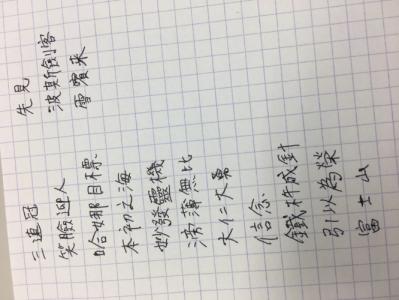 三連冠
笑臉迎人
哈娜目標
本初之海
妙發靈機
滂薄無比
大仁大勇
信念
鐵杵成針
引以為榮
富士山
先見
波斯劍客
雷賓来